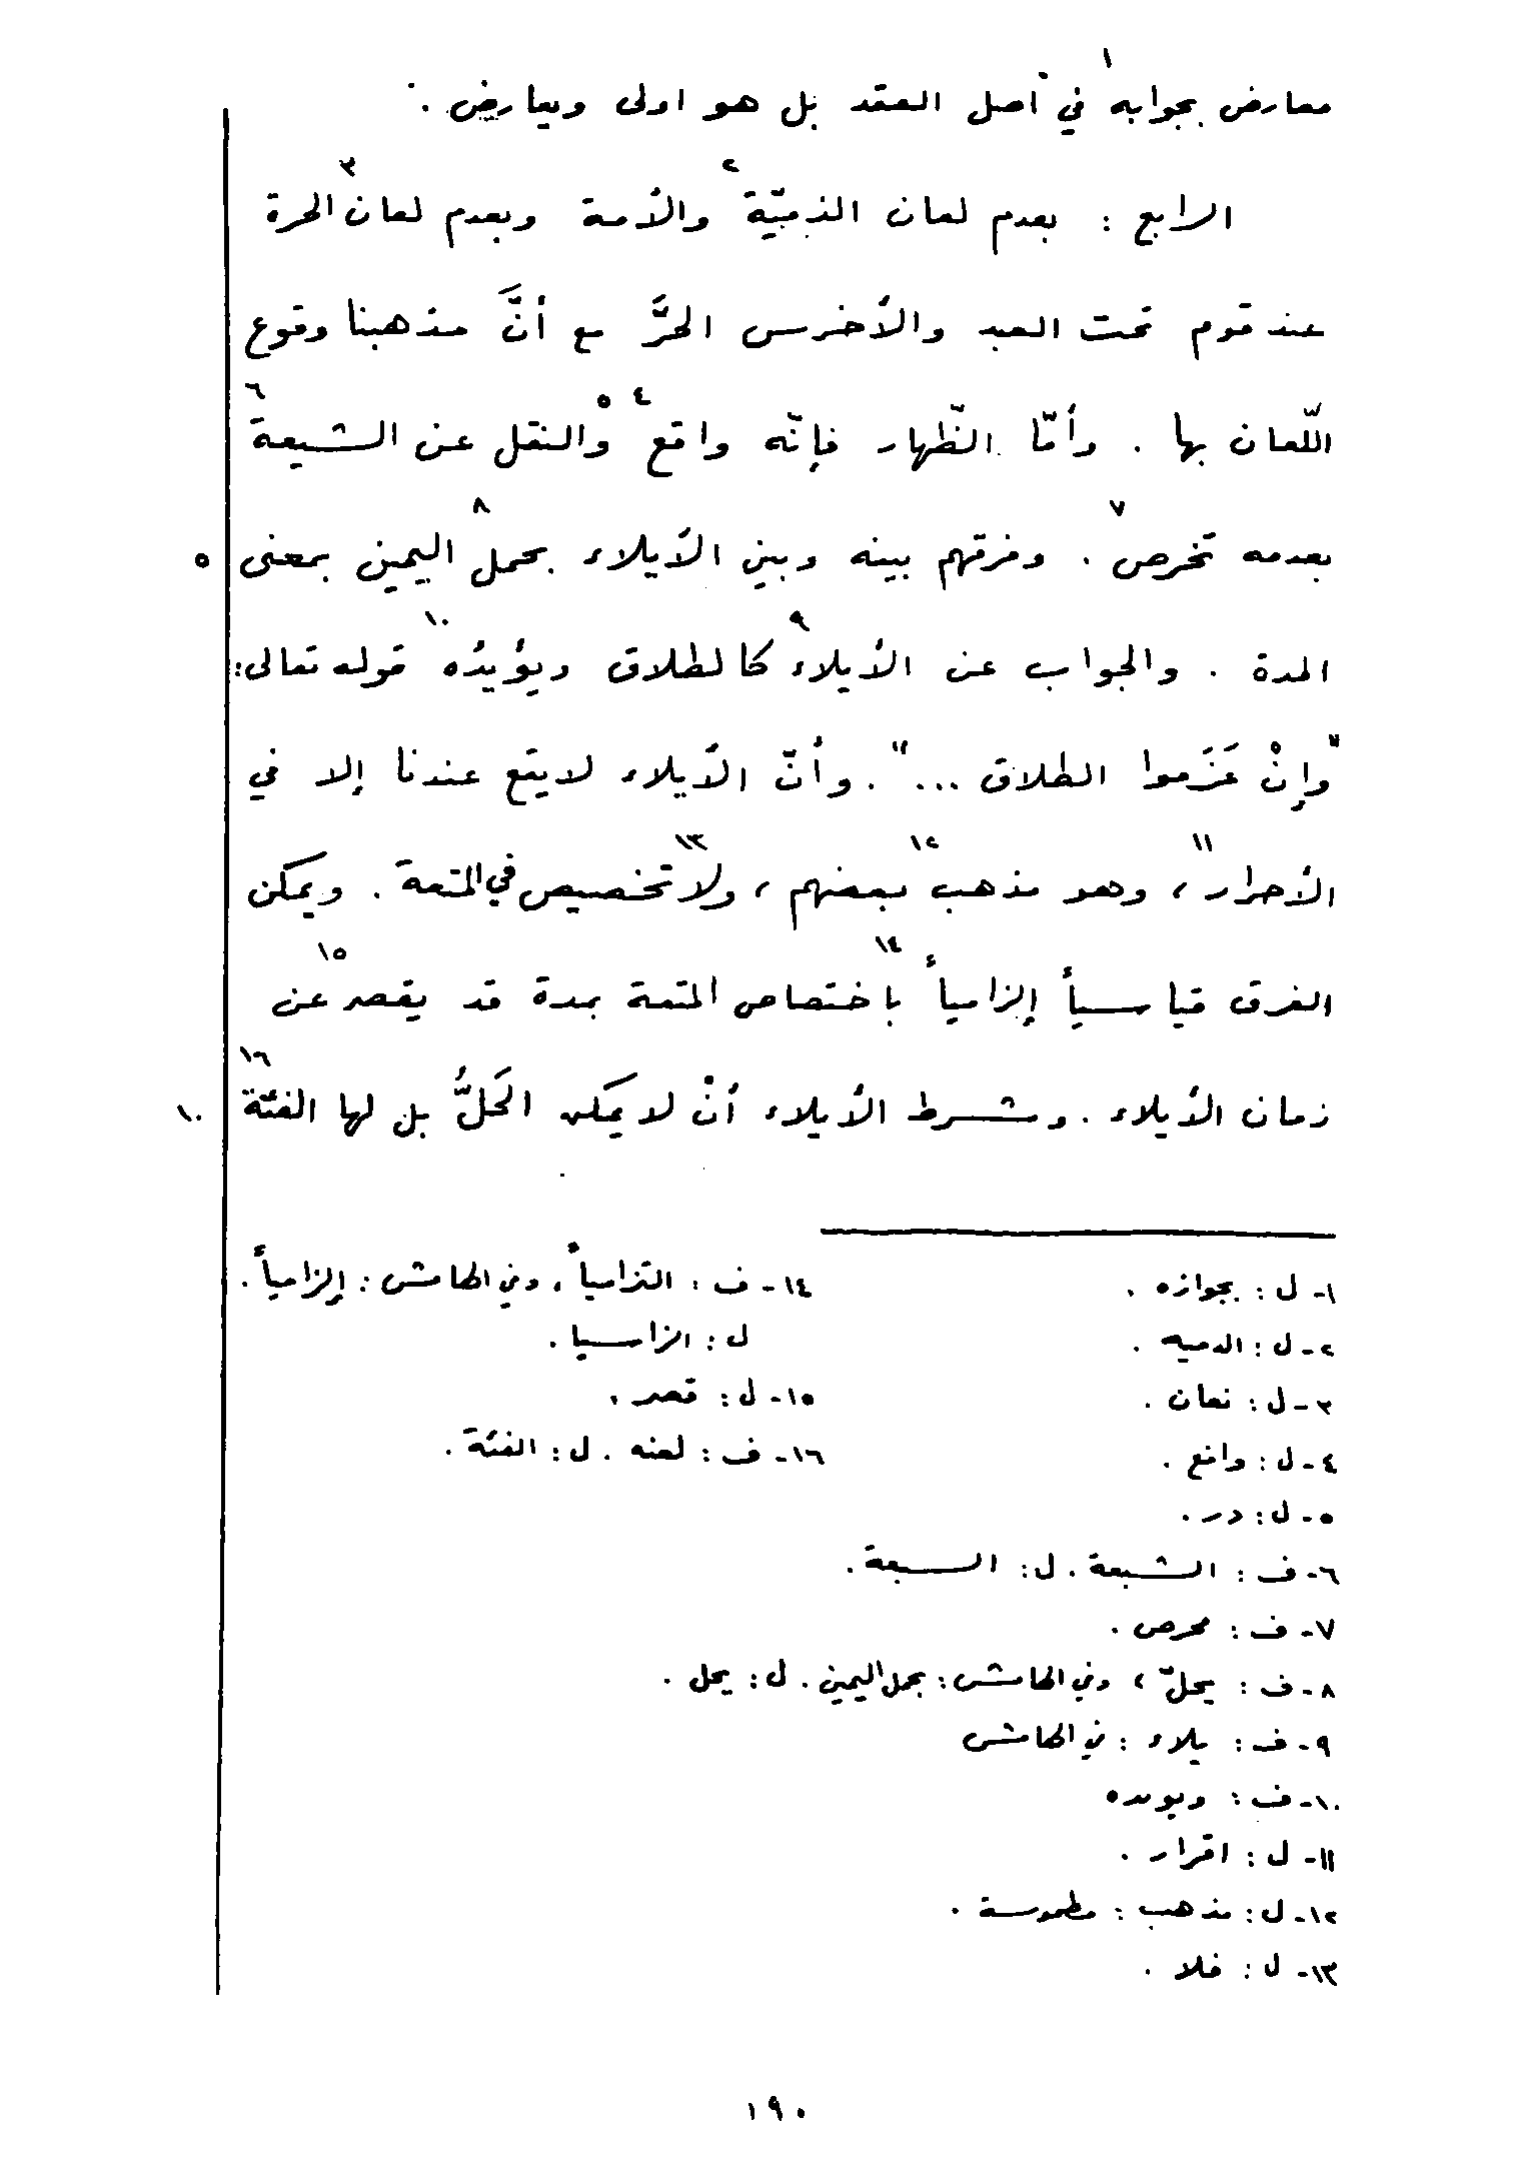 معارض بجوابه١ في أصل العقد بل هو اولى ويعارض .
الرابع : بعدم لعان الذميّة٢ والأمة وبعدم لعان٣ الحرة
عند قوم تحت العبد والأخرس الحرَّ مع أنَّ مذهبنا وقوع
اللّعان بها . وأمّا الظّهار فإنّه واقع٤ والنقل٥ عن الشيعة٦
بعدمه تخرص٧ . وفرقهم بينه وبين الأيلاء بحمل٨ اليمين بمعنى ٥
المدة . والجواب عن الأيلاء٩ كالطلاق ويؤيدُه١٠ قوله تعالى :
"وإنْ عَزَموا الطلاق ..." . وأنّ الأيلاء لايقع عندنا إلا في
الأحرار١١ ، وهو مذهب١٢ بعضهم ، ولا١٣ تخصيص في المتعة . ويمكن
الفرق قياسيأ إلزاميأ١٤ باختصاص المتعة بمدة قد يقصر١٥ عن
زمان الأيلاء . وشرط الأيلاء أنْ لا يمكن الحَلُّ بل لها الفئة١٦ ١٠
١- ل : بجوازه .
٢- ل : الدميه .
٣- ل : نعان .
٤- ل : وانع .
٥- ل : در .
٦- ف : الشبعة . ل : السبعة .
٧- ف : محرص .
٨- ف : يحلّ ، وفي الهامش : بحمل اليمين . ل : يحل .
٩- ف : يلاء : في الهامش
١٠- ف : ويوىده
١١- ل : اقرار .
١٢- ل : مذهب : مطموسة .
١٣- ل : فلا .
١٤- ف : التزاميأ ، وفي الهامش : إلزاميأ .
ل : الزاسيا .
١٥- ل : قصر .
١٦- ف : لعنه . ل : الفئة .
١٩٠